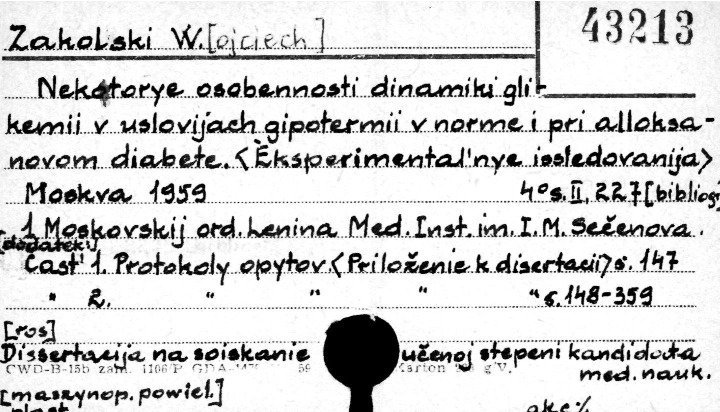 43213
Zakolski W.[ojciech]
Nekotorye osobennosti dinamiki gli-
kemii v uslovijach gipotermii v norme i pri alloksa-
novom diabete. <Èksperimental'nye issledovanija>
Moskva 1959 4° s. II, 227 [bibliogr
1 Moskovskij ord. Lenina Med. Inst. im. I. M. Sečenova.
[dodatek:]
Čast' 1. Protokoly opytov <Priloženie k disertacii> s. 147
" 2. " " " " s. 148-359
[ros]
Dissertacija na soiskanie učenoj stepeni kandidata
CWD-B-15b zam. 1106/P GDA 59 Karton g/V.
med. nauk.
[maszynop. powiel.]